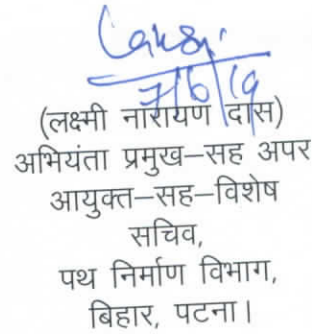 7/6/19
(लक्ष्मी नारायण दास)
अभियंता प्रमुख–सह अपर
आयुक्त–सह–विशेष
सचिव,
पथ निर्माण विभाग,
बिहार, पटना।